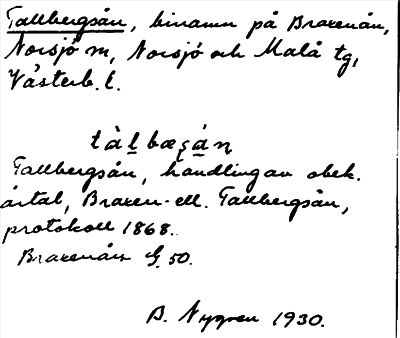 Tallbergsån, binamn på Braxenån,
Norsjö m, Norsjö och Malå tg,
Västerb. l.
tàl̲bæʂá̲ṇ
Tallbergsån, handlingar obek.
årtal, Braxen- ell. Tallbergsån,
protokoll 1868.
Braxenån G. 50.
B. Nygren 1930.